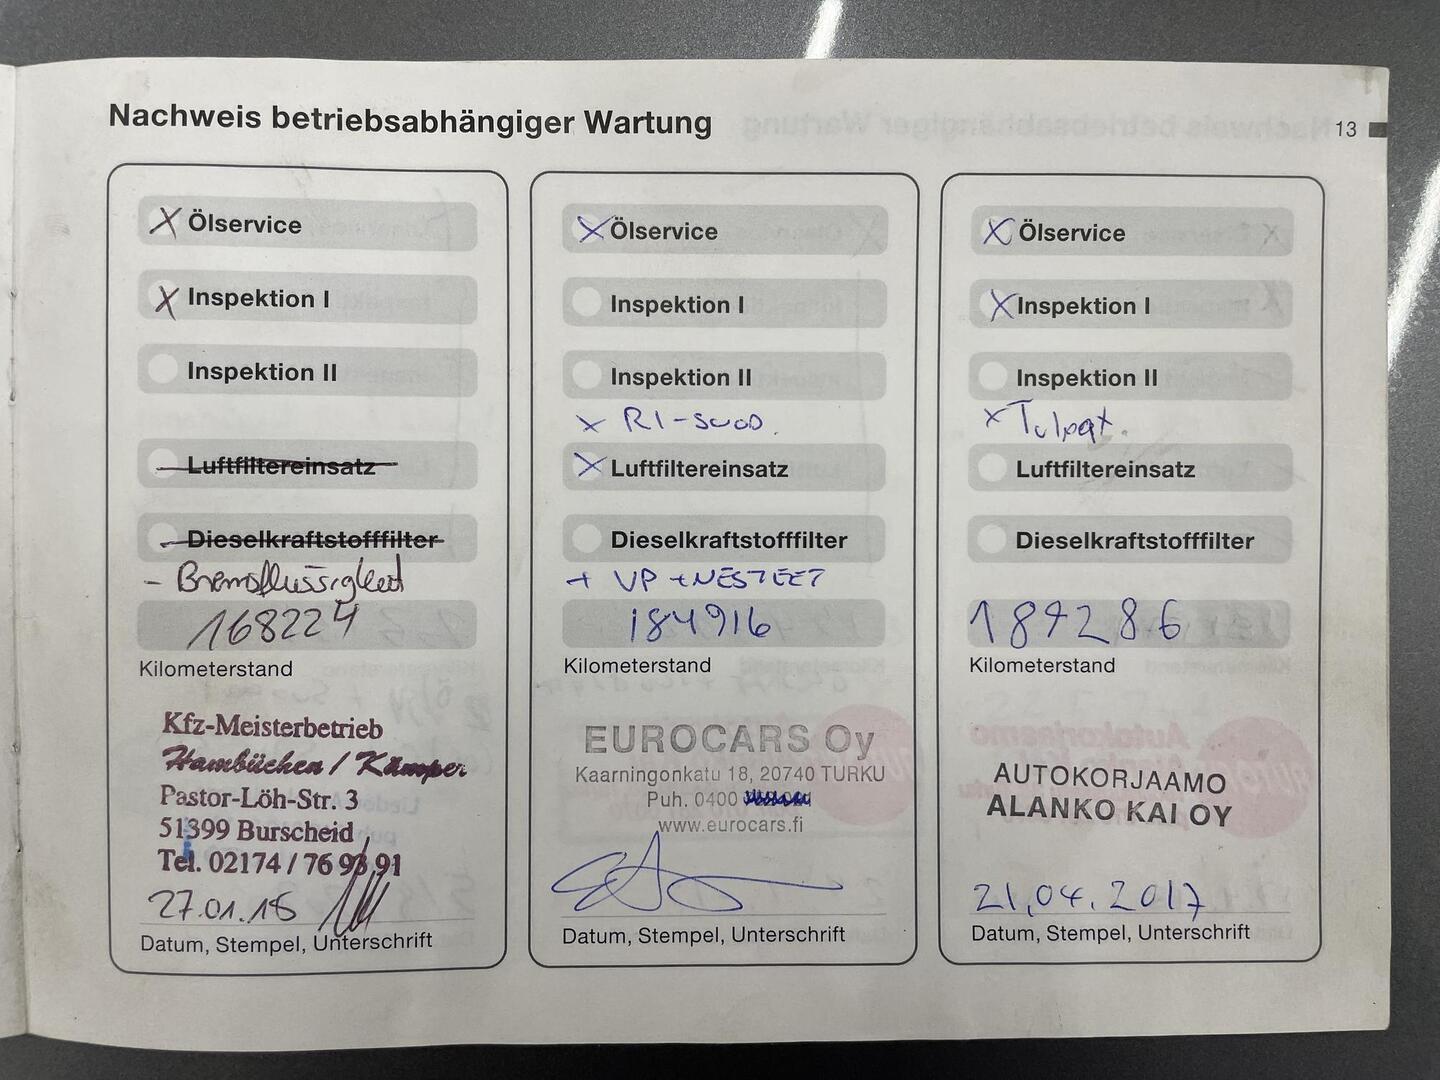 Nachweis betriebsabhängiger Wartung
13
X Ölservice
X Inspektion I
Inspektion II
Luftfiltereinsatz
Dieselkraftstofffilter
- Bremsflüssigkeit
168224
Kilometerstand
Kfz-Meisterbetrieb
Hambüchen / Kämper
Pastor-Löh-Str. 3
51399 Burscheid
Tel. 02174 / 76 93 91
27.01.16
Datum, Stempel, Unterschrift
X Ölservice
Inspektion I
Inspektion II
x RI-SUOD.
X Luftfiltereinsatz
Dieselkraftstofffilter
+ VP +NESTEET
184916
Kilometerstand
EUROCARS Oy
Kaarningonkatu 18, 20740 TURKU
Puh. 0400
www.eurocars.fi
Datum, Stempel, Unterschrift
X Ölservice
X Inspektion I
Inspektion II
x Tulpat.
Luftfiltereinsatz
Dieselkraftstofffilter
189286
Kilometerstand
AUTOKORJAAMO
ALANKO KAI OY
21.04.2017
Datum, Stempel, Unterschrift